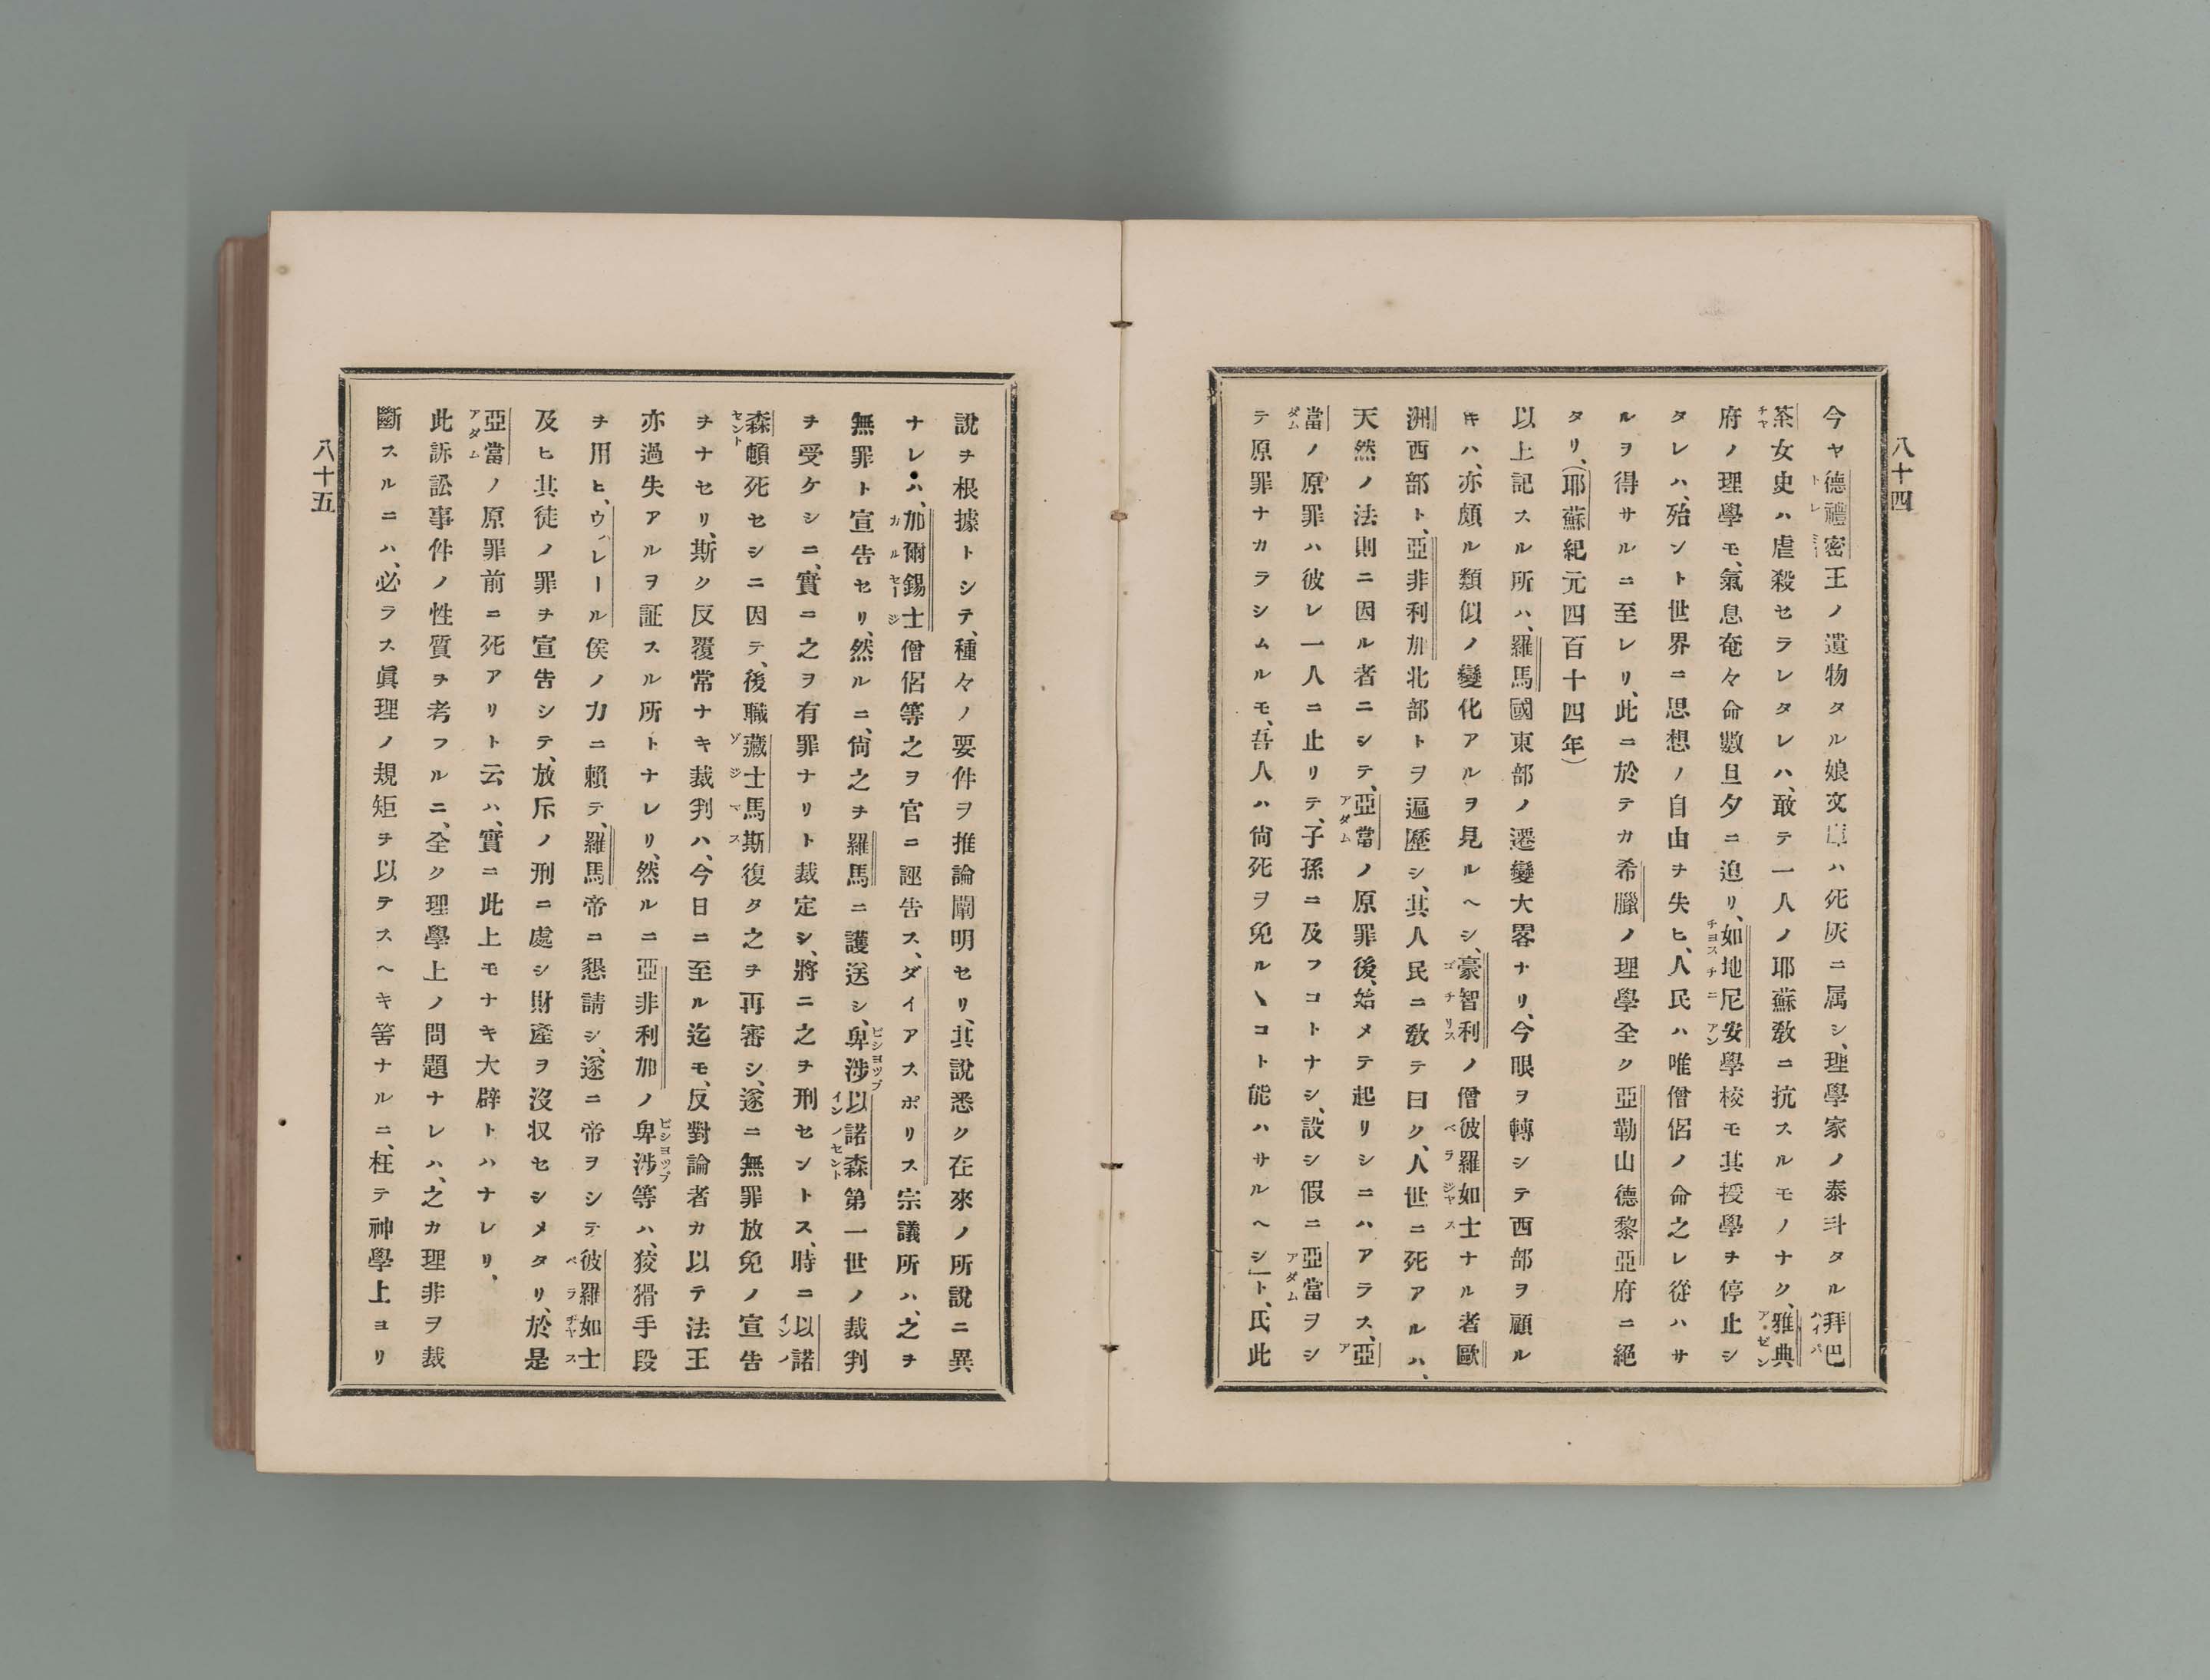 八十四
今ヤ德禮密王ノ遺物タル娘文庫ハ死灰ニ属シ、理學家ノ泰斗タル拜巴
茶女史ハ虐殺セラレタレハ、敢テ一人ノ耶蘇敎ニ抗スルモノナク、雅典
府ノ理學モ、氣息奄々命數旦夕ニ迫リ、如地尼安學校モ其授學ヲ停止シ
タレハ、殆ント世界ニ思想ノ自由ヲ失ヒ、人民ハ唯僧侶ノ命之レ從ハサ
ルヲ得サルニ至レリ、此ニ於テカ希臘ノ理學全ク亞勒山德黎亞府ニ絕
タリ、(耶蘇紀元四百十四年)
以上記スル所ハ、羅馬國東部ノ遷變大畧ナリ、今眼ヲ轉シテ西部ヲ顧ル
キハ、亦頗ル類似ノ變化アルヲ見ルヘシ、豪智利ノ僧彼羅如士ナル者歐
洲西部ト、亞非利加北部トヲ遍歷シ、其人民ニ敎テ曰ク、人世ニ死アルハ、
天然ノ法則ニ因ル者ニシテ、亞當ノ原罪後、始メテ起リシニハアラス、亞
當ノ原罪ハ彼レ一人ニ止リテ、子孫ニ及フコトナシ、設シ假ニ亞當ヲシ
テ原罪ナカラシムルモ、吾人ハ尙死ヲ免ルヽコト能ハサルヘシ」ト、氏此
說ヲ根據トシテ、種々ノ要件ヲ推論闡明セリ、其說悉ク在來ノ所說ニ異
ナレハ、加爾錫士僧侶等之ヲ官ニ誣告ス、ダイアスポリス宗議所ハ、之ヲ
無罪ト宣告セリ、然ルニ、尙之ヲ羅馬ニ護送シ、卑涉以諾森第一世ノ裁判
ヲ受ケシニ、實ニ之ヲ有罪ナリト裁定シ、將ニ之ヲ刑セントス、時ニ以諾
森頓死セシニ因テ、後職藏士馬斯復タ之ヲ再審シ、遂ニ無罪放免ノ宣告
ヲナセリ、斯ク反覆常ナキ裁判ハ、今日ニ至ル迄モ、反對論者カ以テ法王
亦過失アルヲ証スル所トナレリ、然ルニ亞非利加ノ卑涉等ハ、狡猾手段
ヲ用ヒ、ウレール侯ノ力ニ賴テ、羅馬帝ニ懇請シ、遂ニ帝ヲシテ彼羅如士
及ヒ其徒ノ罪ヲ宣告シテ、放斥ノ刑ニ處シ財產ヲ沒収セシメタリ、於是
亞當ノ原罪前ニ死アリト云ハ、實ニ此上モナキ大辟トハナレリ、
此訴訟事件ノ性質ヲ考フルニ、全ク理學上ノ問題ナレハ、之カ理非ヲ裁
斷スルニハ、必ラス眞理ノ規矩ヲ以テスヘキ筈ナルニ、枉テ神學上ヨリ
八十五